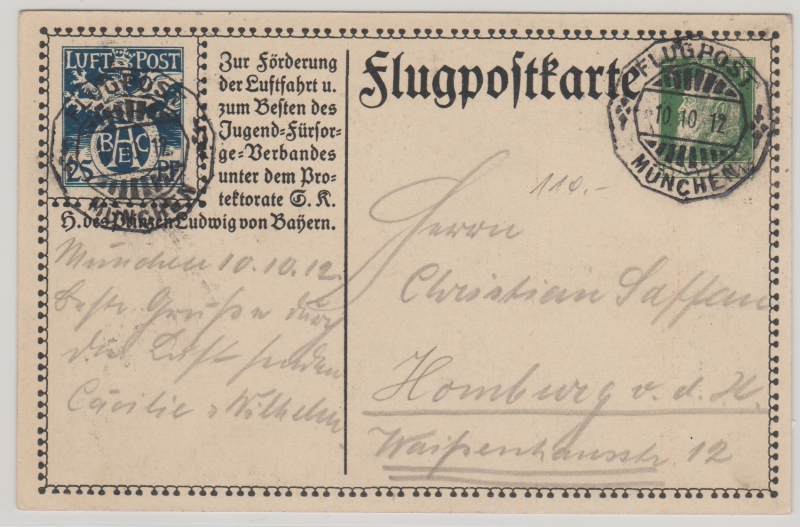 LUFT POST
BAEC
25 PF
FLUGPOST
MÜNCHEN
Zur Förderung
der Luftfahrt u.
zum Besten des
Jugend-Fürsor-
ge-Verbandes
unter dem Pro-
tektorate S. K.
H. des Prinzen Ludwig von Bayern.
Flugpostkarte
FLUGPOST
10.10.12
MÜNCHEN
110.-
München 10.10.12.
Beste Grüße durch
die Luft senden
Cäcilie u Wilhelm
Herrn
Christian
Homburg v. d. H.
Waisenhausstr 12